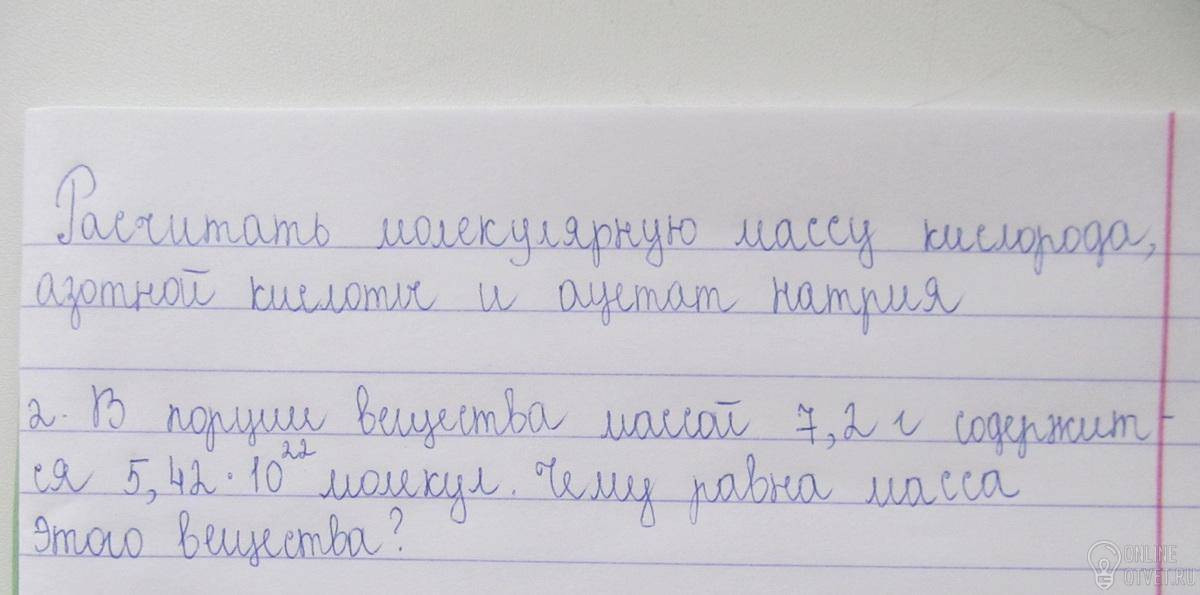 Расчитать молекулярную массу кислорода,
азотной кислоты и ацетат натрия
2. В порции вещества массой 7,2 г содержит-
ся 5,42·10²² молекул. Чему равна масса
этого вещества?
ONLINE
OTVET.RU